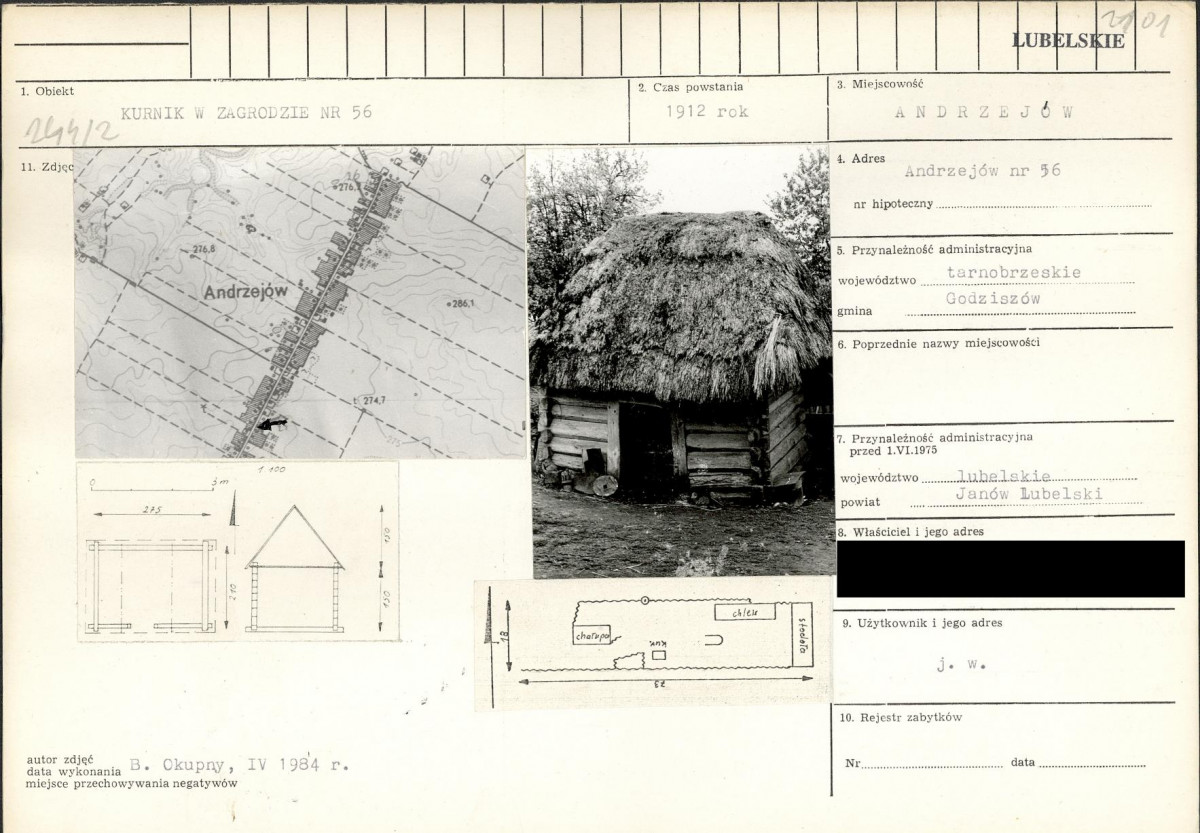 2101
LUBELSKIE
1. Obiekt
KURNIK W ZAGRODZIE NR 56
2. Czas powstania
1912 rok
3. Miejscowość
ANDRZEJÓW
11. Zdjęc
276,8
Andrzejów
286,1
274,7
1:100
0 3m
275
210
150
150
chałupa
chlew
stodoła
kur
18
4. Adres
Andrzejów nr 56
nr hipoteczny
5. Przynależność administracyjna
województwo tarnobrzeskie
gmina Godziszów
6. Poprzednie nazwy miejscowości
7. Przynależność administracyjna
przed 1.VI.1975
województwo lubelskie
powiat Janów Lubelski
8. Właściciel i jego adres
9. Użytkownik i jego adres
j. w.
10. Rejestr zabytków
Nr data
autor zdjęć
data wykonania B. Okupny, IV 1984 r.
miejsce przechowywania negatywów